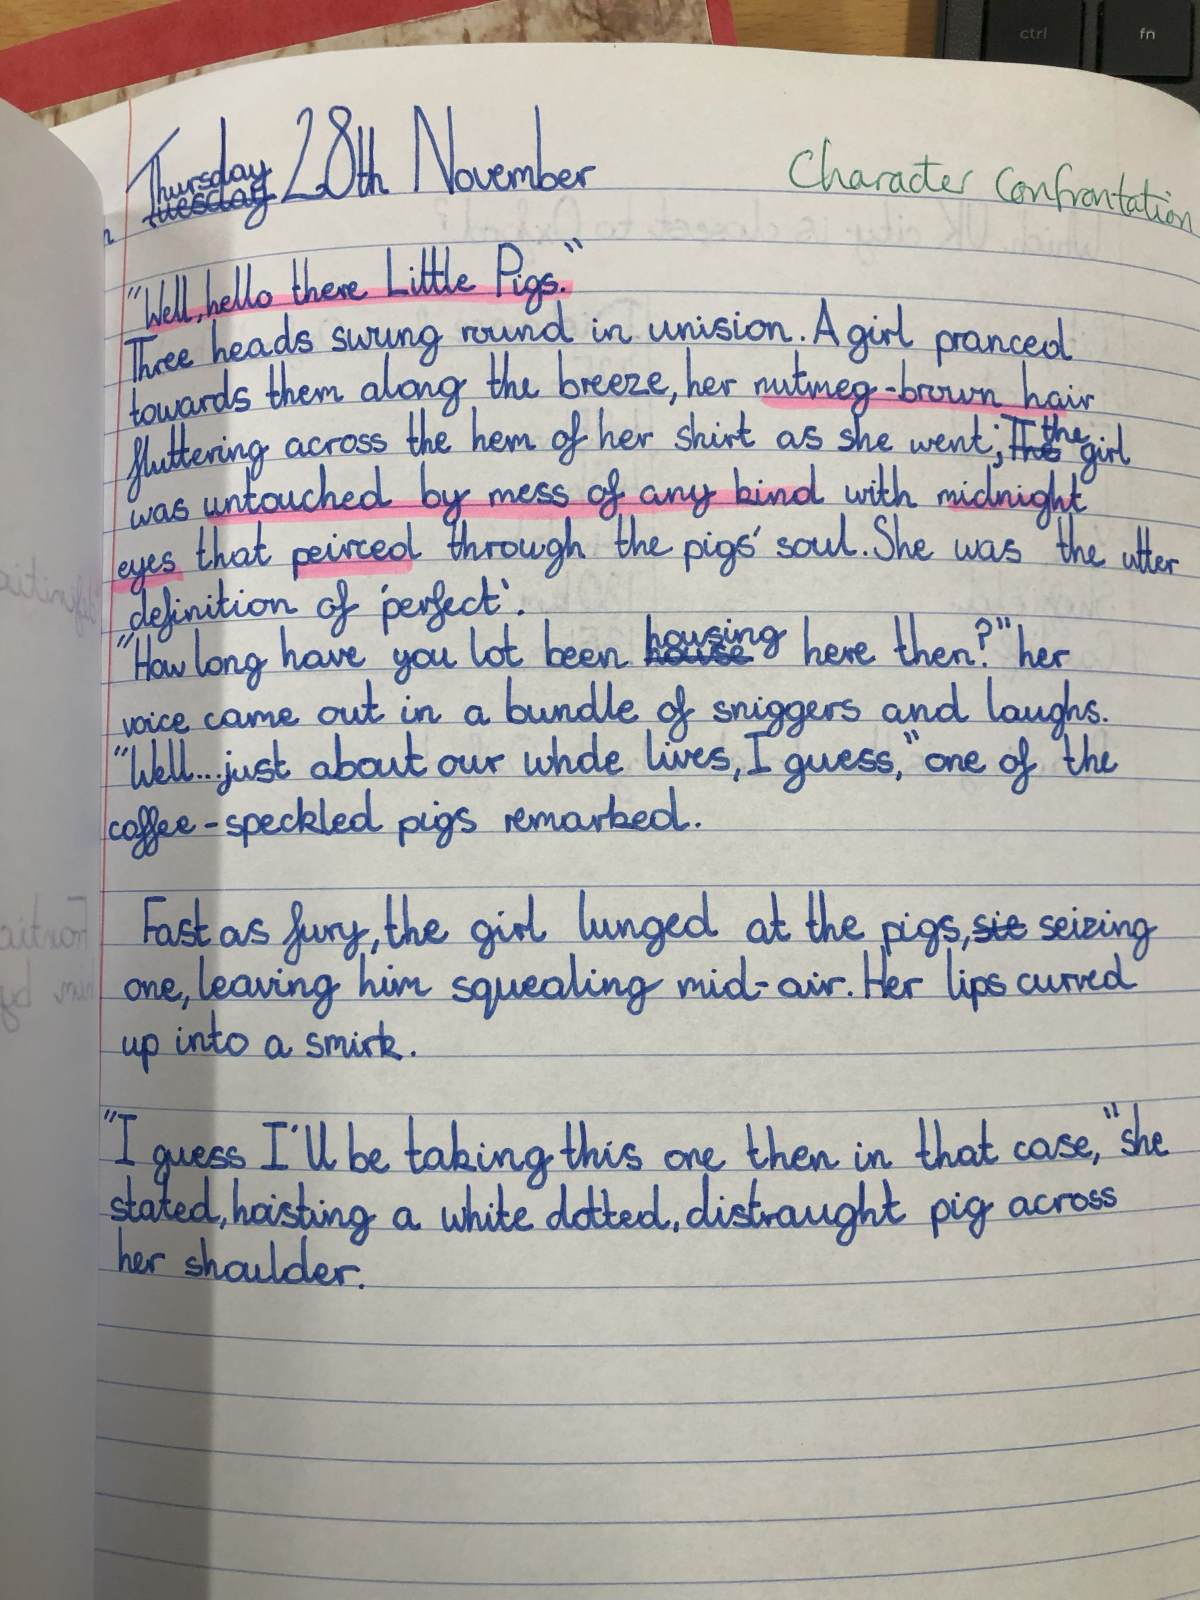 ctrl fn
Thursday 28th November Character Confrontation
Tuesday
"Well, hello there Little Pigs."
Three heads swung round in unision. A girl pranced
towards them along the breeze, her nutmeg-brown hair
fluttering across the hem of her shirt as she went; The the girl
was untouched by mess of any kind with midnight
eyes that peirced through the pigs' soul. She was the utter
definition of 'perfect'.
"How long have you lot been house housing here then?" her
voice came out in a bundle of sniggers and laughs.
"Well...just about our whole lives, I guess," one of the
coffee-speckled pigs remarked.
Fast as fury, the girl lunged at the pigs, sie seizing
one, leaving him squealing mid-air. Her lips curved
up into a smirk.
"I guess I'll be taking this one then in that case," she
stated, hoisting a white dotted, distraught pig across
her shoulder.